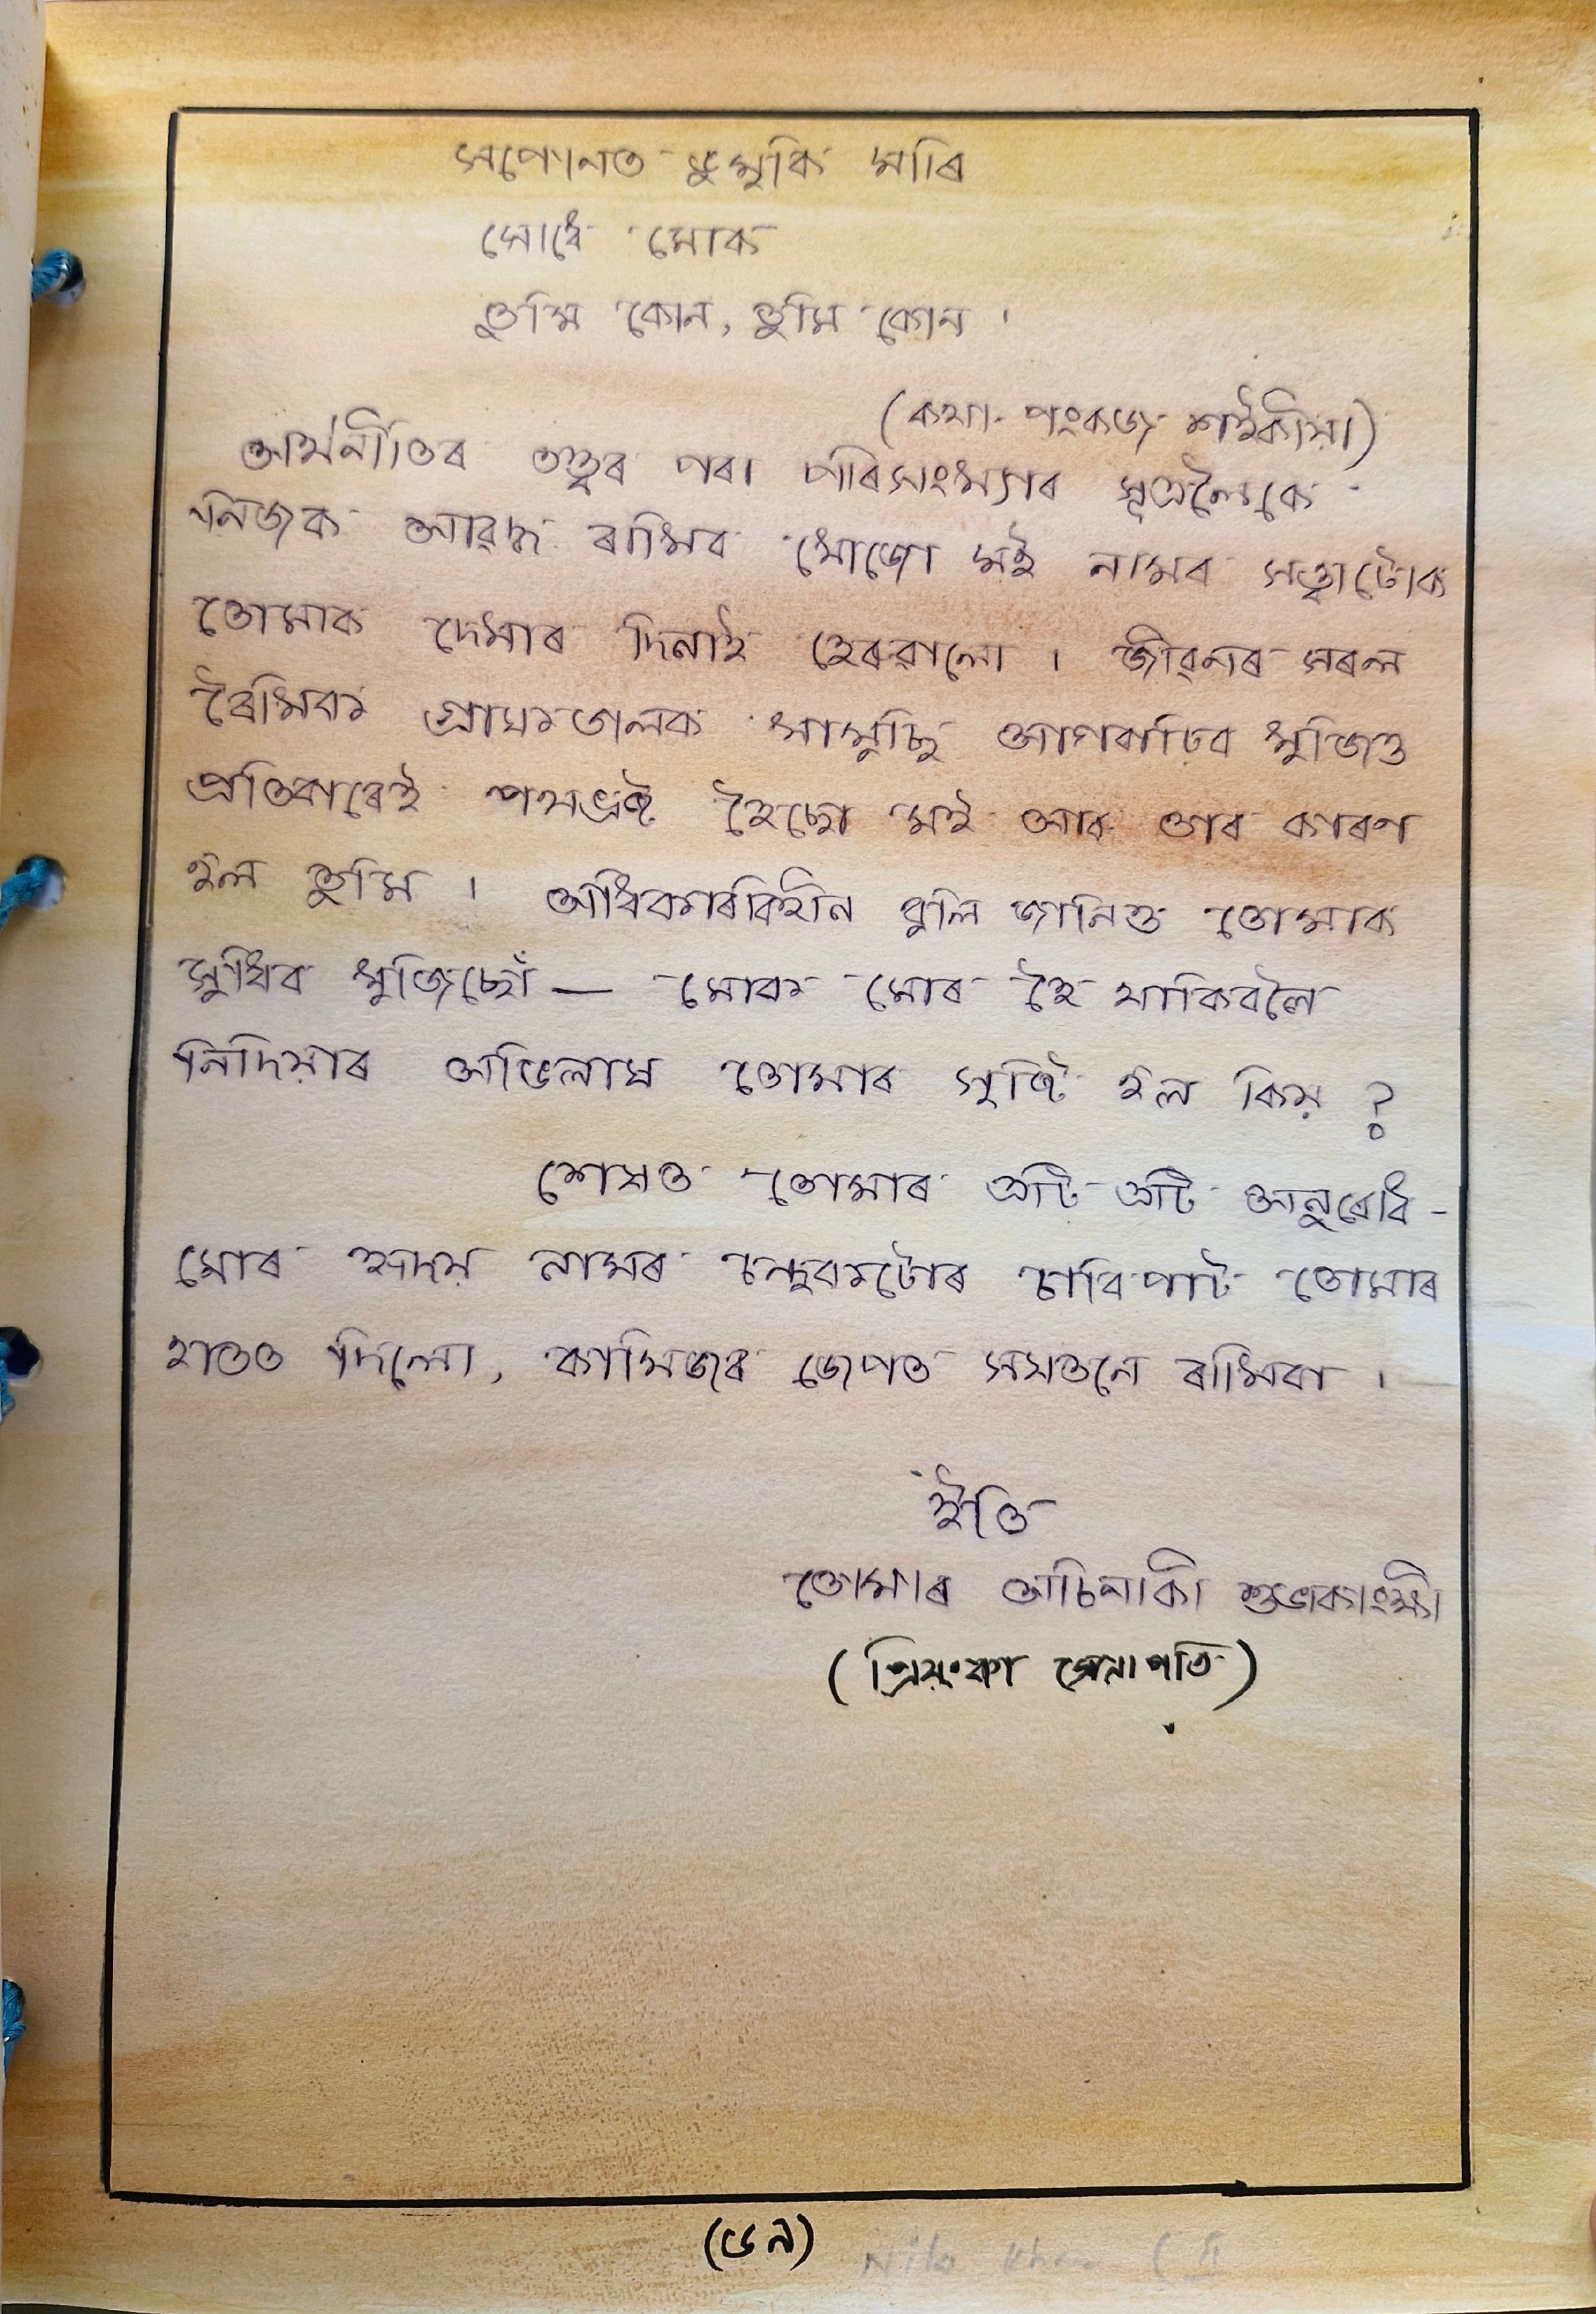 সপোনত ভুমুকি মাৰি
সোধে মোক
তুমি কোন, তুমি কোন ।
(কথা- পংকজ শইকীয়া)
অৰ্থনীতিৰ তত্ত্বৰ পৰা পৰিসংখ্যাৰ সূত্ৰলৈকে
নিজক আৱদ্ধ ৰাখিব খোজো মই নামৰ সত্ত্বাটোক
তোমাক দেখাৰ দিনাই হেৰুৱালো । জীৱনৰ সৰল
ৰৈখিক গ্ৰাফডালক খামুচি আগবাঢ়িব খুজিও
প্ৰতিবাৰেই পথভ্ৰষ্ট হৈছো মই আৰু তাৰ কাৰণ
হ'ল তুমি । অধিকাৰবিহীন বুলি জানিও তোমাক
সুধিব খুজিছোঁ — মোক মোৰ হৈ থাকিবলৈ
নিদিয়াৰ অভিলাষ তোমাৰ সৃষ্টি হ'ল কিয় ?
শেষত তোমাৰ প্ৰতি এটি অনুৰোধ -
মোৰ হৃদয় নামৰ চন্দুকটোৰ চাবিপাট তোমাৰ
হাতত দিলো, কামিজৰ জেপত সযতনে ৰাখিবা ।
ইতি
তোমাৰ অচিনাকী শুভাকাংক্ষী
(প্ৰিয়ংকা সেনাপতি)
(৬৭)